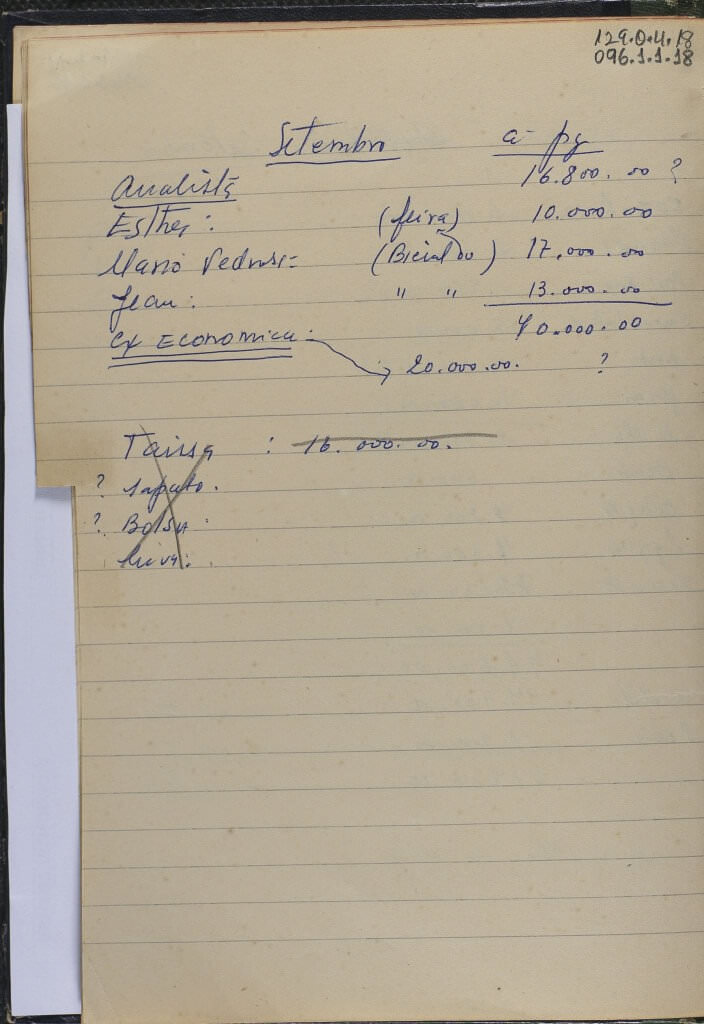 129.0.4.18
096.1.1.18
Setembro a pg
Analista 16.800.00 ?
Esther: (feira) 10.000.00
Mario Pedrosa= 17.000.00
Jean: " " 13.000.00
40.000.00
Cx Economica:
20.000.00. ?
Taissa : 16.000.00.
? Sapato.
? Bolsa: